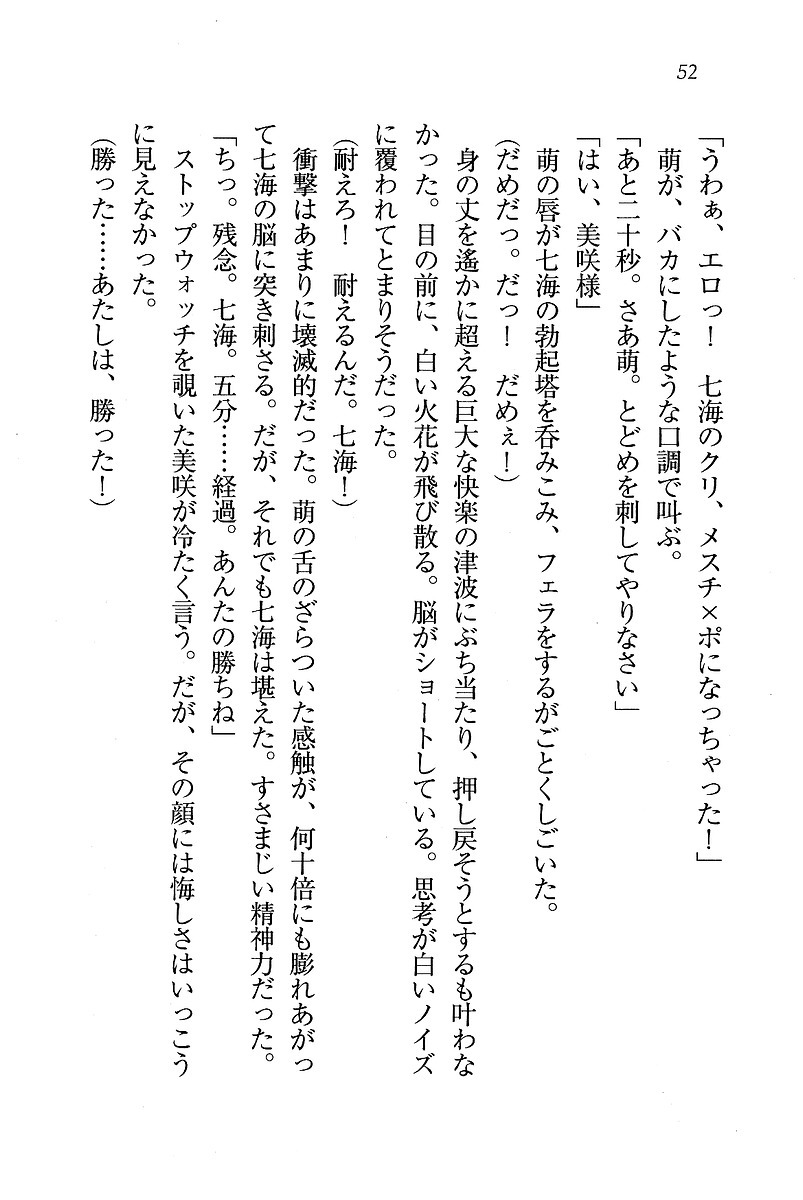 52
「うわぁ、エロっ！　七海のクリ、メスチ×ポになっちゃった！」
萌が、バカにしたような口調で叫ぶ。
「あと二十秒。さあ萌。とどめを刺してやりなさい」
「はい、美咲様」
萌の唇が七海の勃起塔を呑みこみ、フェラをするがごとくしごいた。
（だめだっ。だっ！　だめぇ！）
身の丈を遙かに超える巨大な快楽の津波にぶち当たり、押し戻そうとするも叶わな
かった。目の前に、白い火花が飛び散る。脳がショートしている。思考が白いノイズ
に覆われてとまりそうだった。
（耐えろ！　耐えるんだ。七海！）
衝撃はあまりに壊滅的だった。萌の舌のざらついた感触が、何十倍にも膨れあがっ
て七海の脳に突き刺さる。だが、それでも七海は堪えた。すさまじい精神力だった。
「ちっ。残念。七海。五分……経過。あんたの勝ちね」
ストップウォッチを覗いた美咲が冷たく言う。だが、その顔には悔しさはいっこう
に見えなかった。
（勝った……あたしは、勝った！）